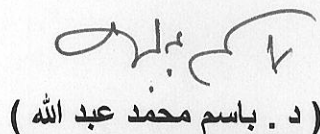 ( د . باسم محمد عبد الله )